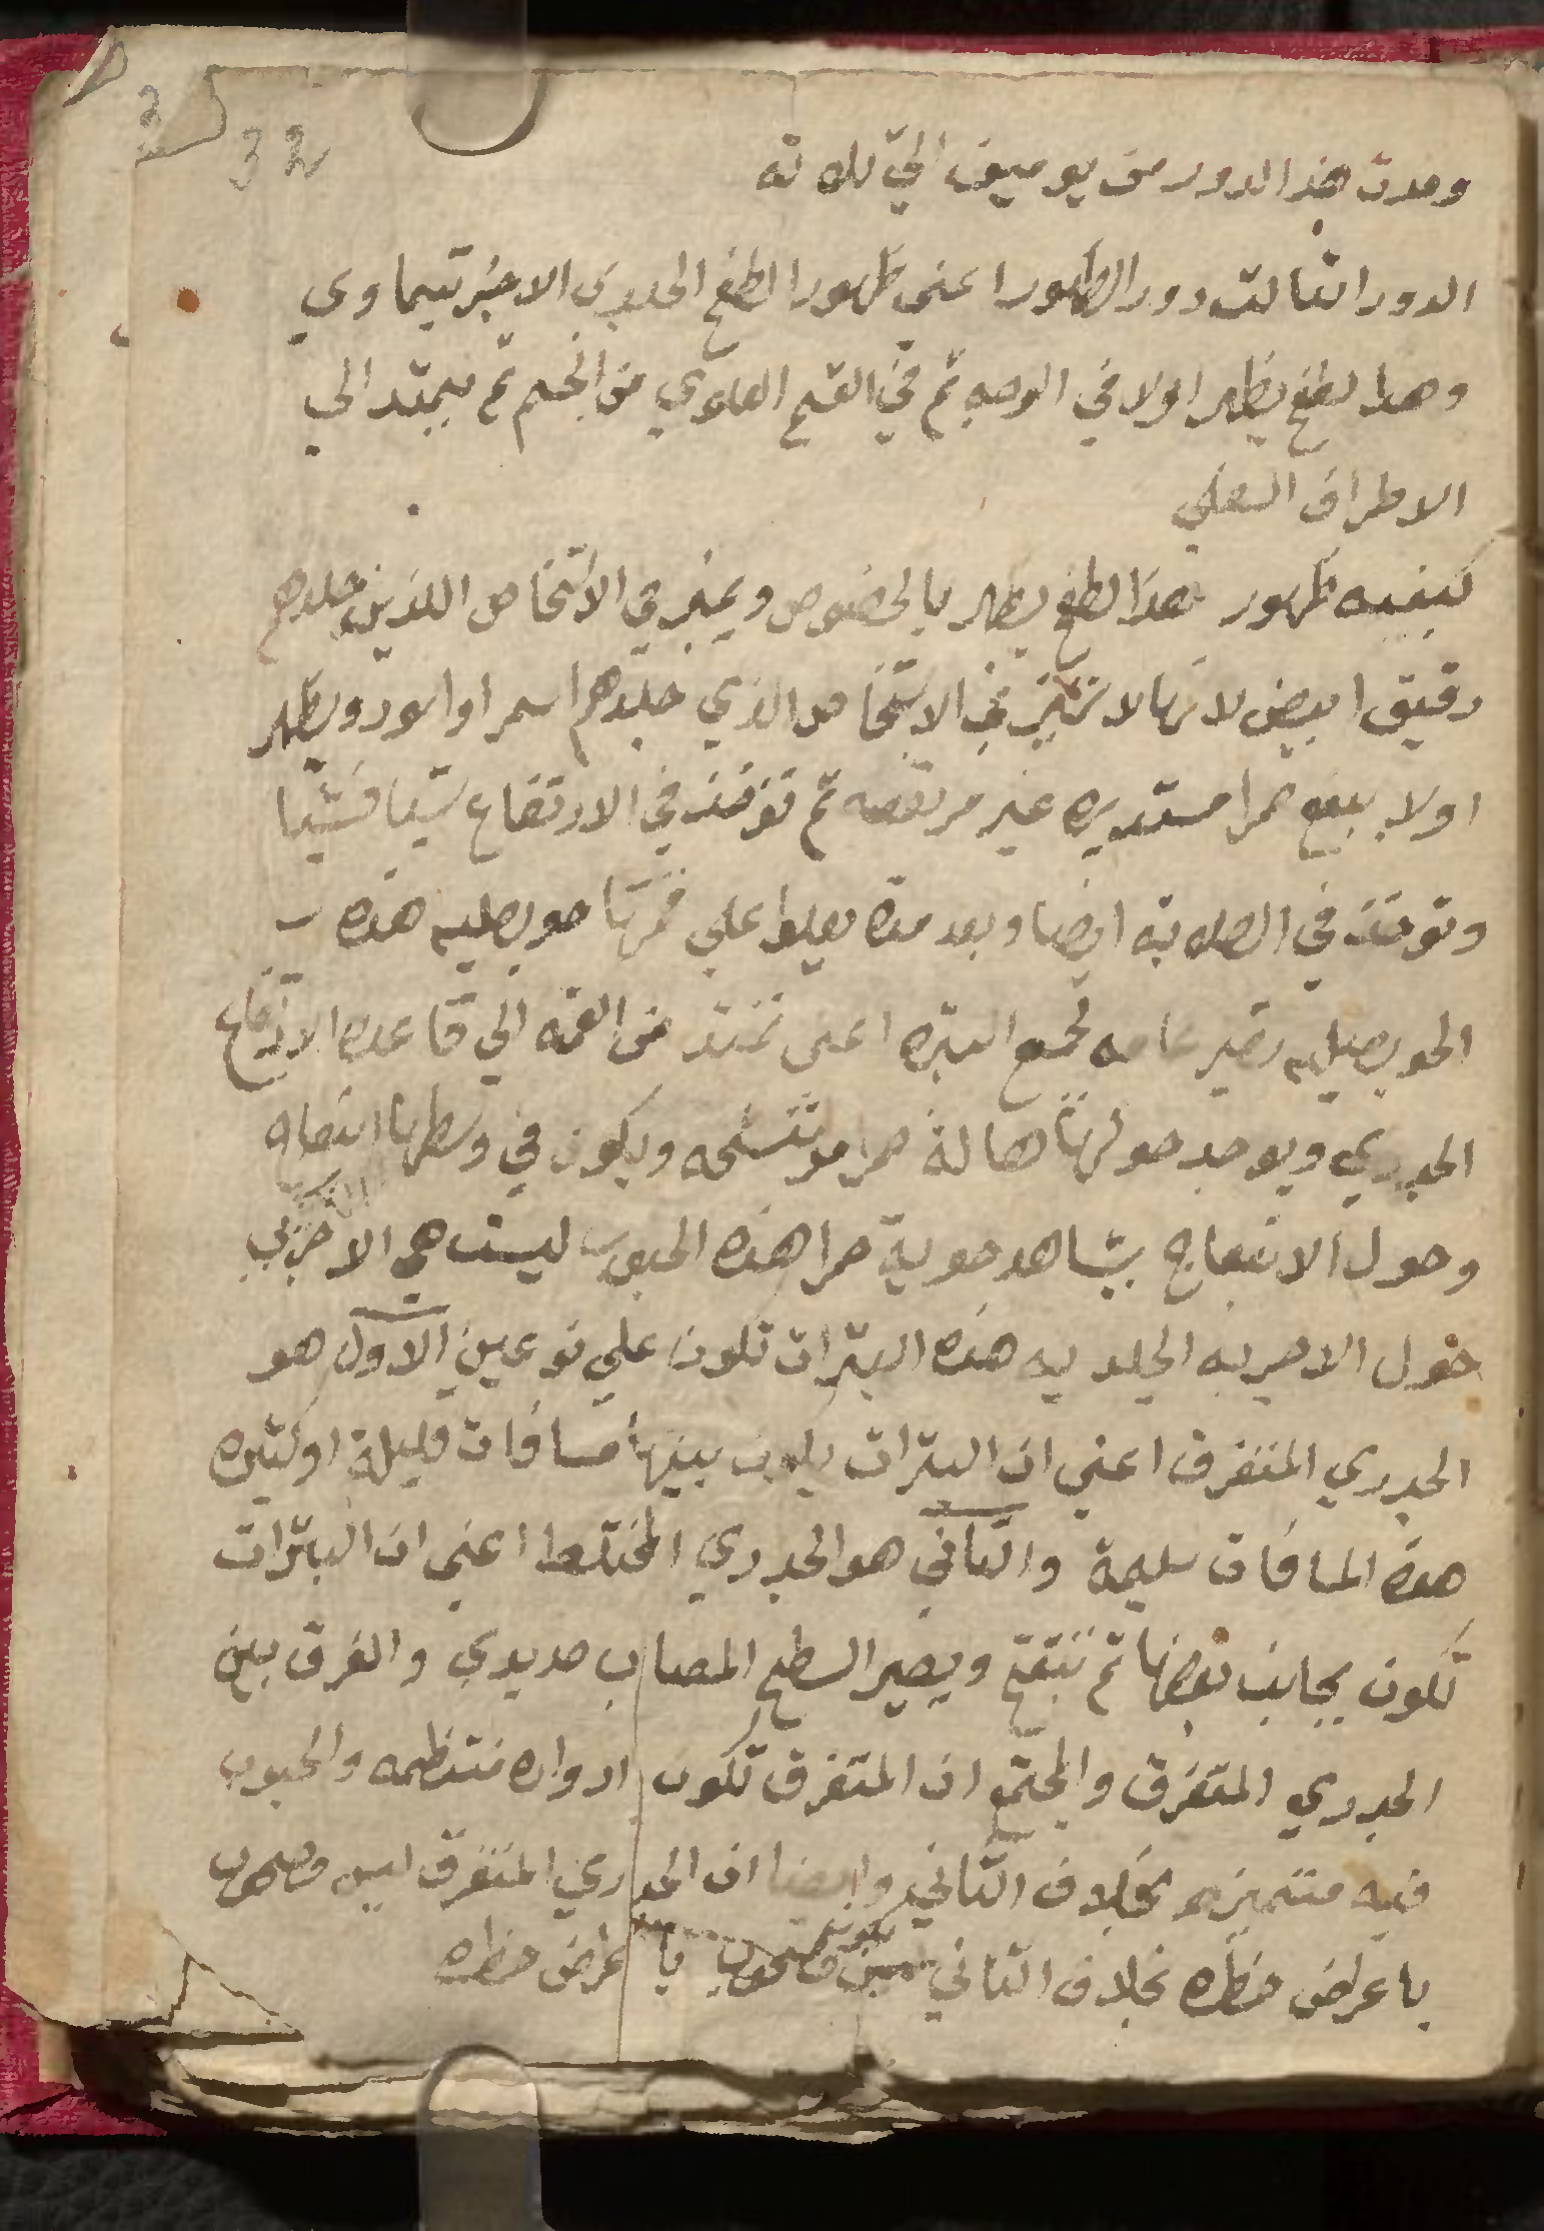 32
ومدت هذا الدور من يومين الي ثلاثه
الدور الثالث دور الظهور اعني ظهور الطفح الجلدي الاجزنتيماوي
وهدا لطفح يظهر اولا في الوجه ثم في القسم العلوي من الجسم ثم يمتد الي
الاطراف السفلي
كيفيه ظهور هذا لطفح يظهر بالخصوص ويميز في الاشخاص اللذين جلدهم
رقيق ابيض لانها لا تتميز في الاشخاص الذي جلدهم اسمر او اسود ويظهر
اولا ببقع حمرا مستديره غير مرتفعه ثم توخذ في الارتفاع شيئا فشيئا
وتوخذ في الصلابه ايضا وبعد مدة يعلوا علي قمتها حويصليه هذه
الحويصليه تصير عامه لجميع البثره اعني تمتد من القمه الي قاعده الارتفاع
الجدري ويوجد حولها هالة حمرا مرتشحه ويكون في وسطها انبعاج
وحول الانبعاج يشاهد حوية حمرا هذه الحبوب ليست هي الا
حول الاجربه الجلديه هذه البثرات تكون علي نوعين الاول هو
الجدري المتفرق اعني ان البثرات يكون بينها مسافات قليلة او كثيره
هذه المسافات سليمة والثاني هو الجدري المختلط اعني ان البثرات
تكون بجانب بعضها ثم تنفتح ويصير السطح المصاب صديدي والفرق بين
الجدري المتفرق والمجتمع ان المتفرق تكون ادواره منتظمه والحبوب
فيه متميزه بخلاف الثاني وايضا ان الجدري المتفرق ليس مصحوب
باعراض خطره بخلاف الثاني يكون مصحوب باعراض خطره